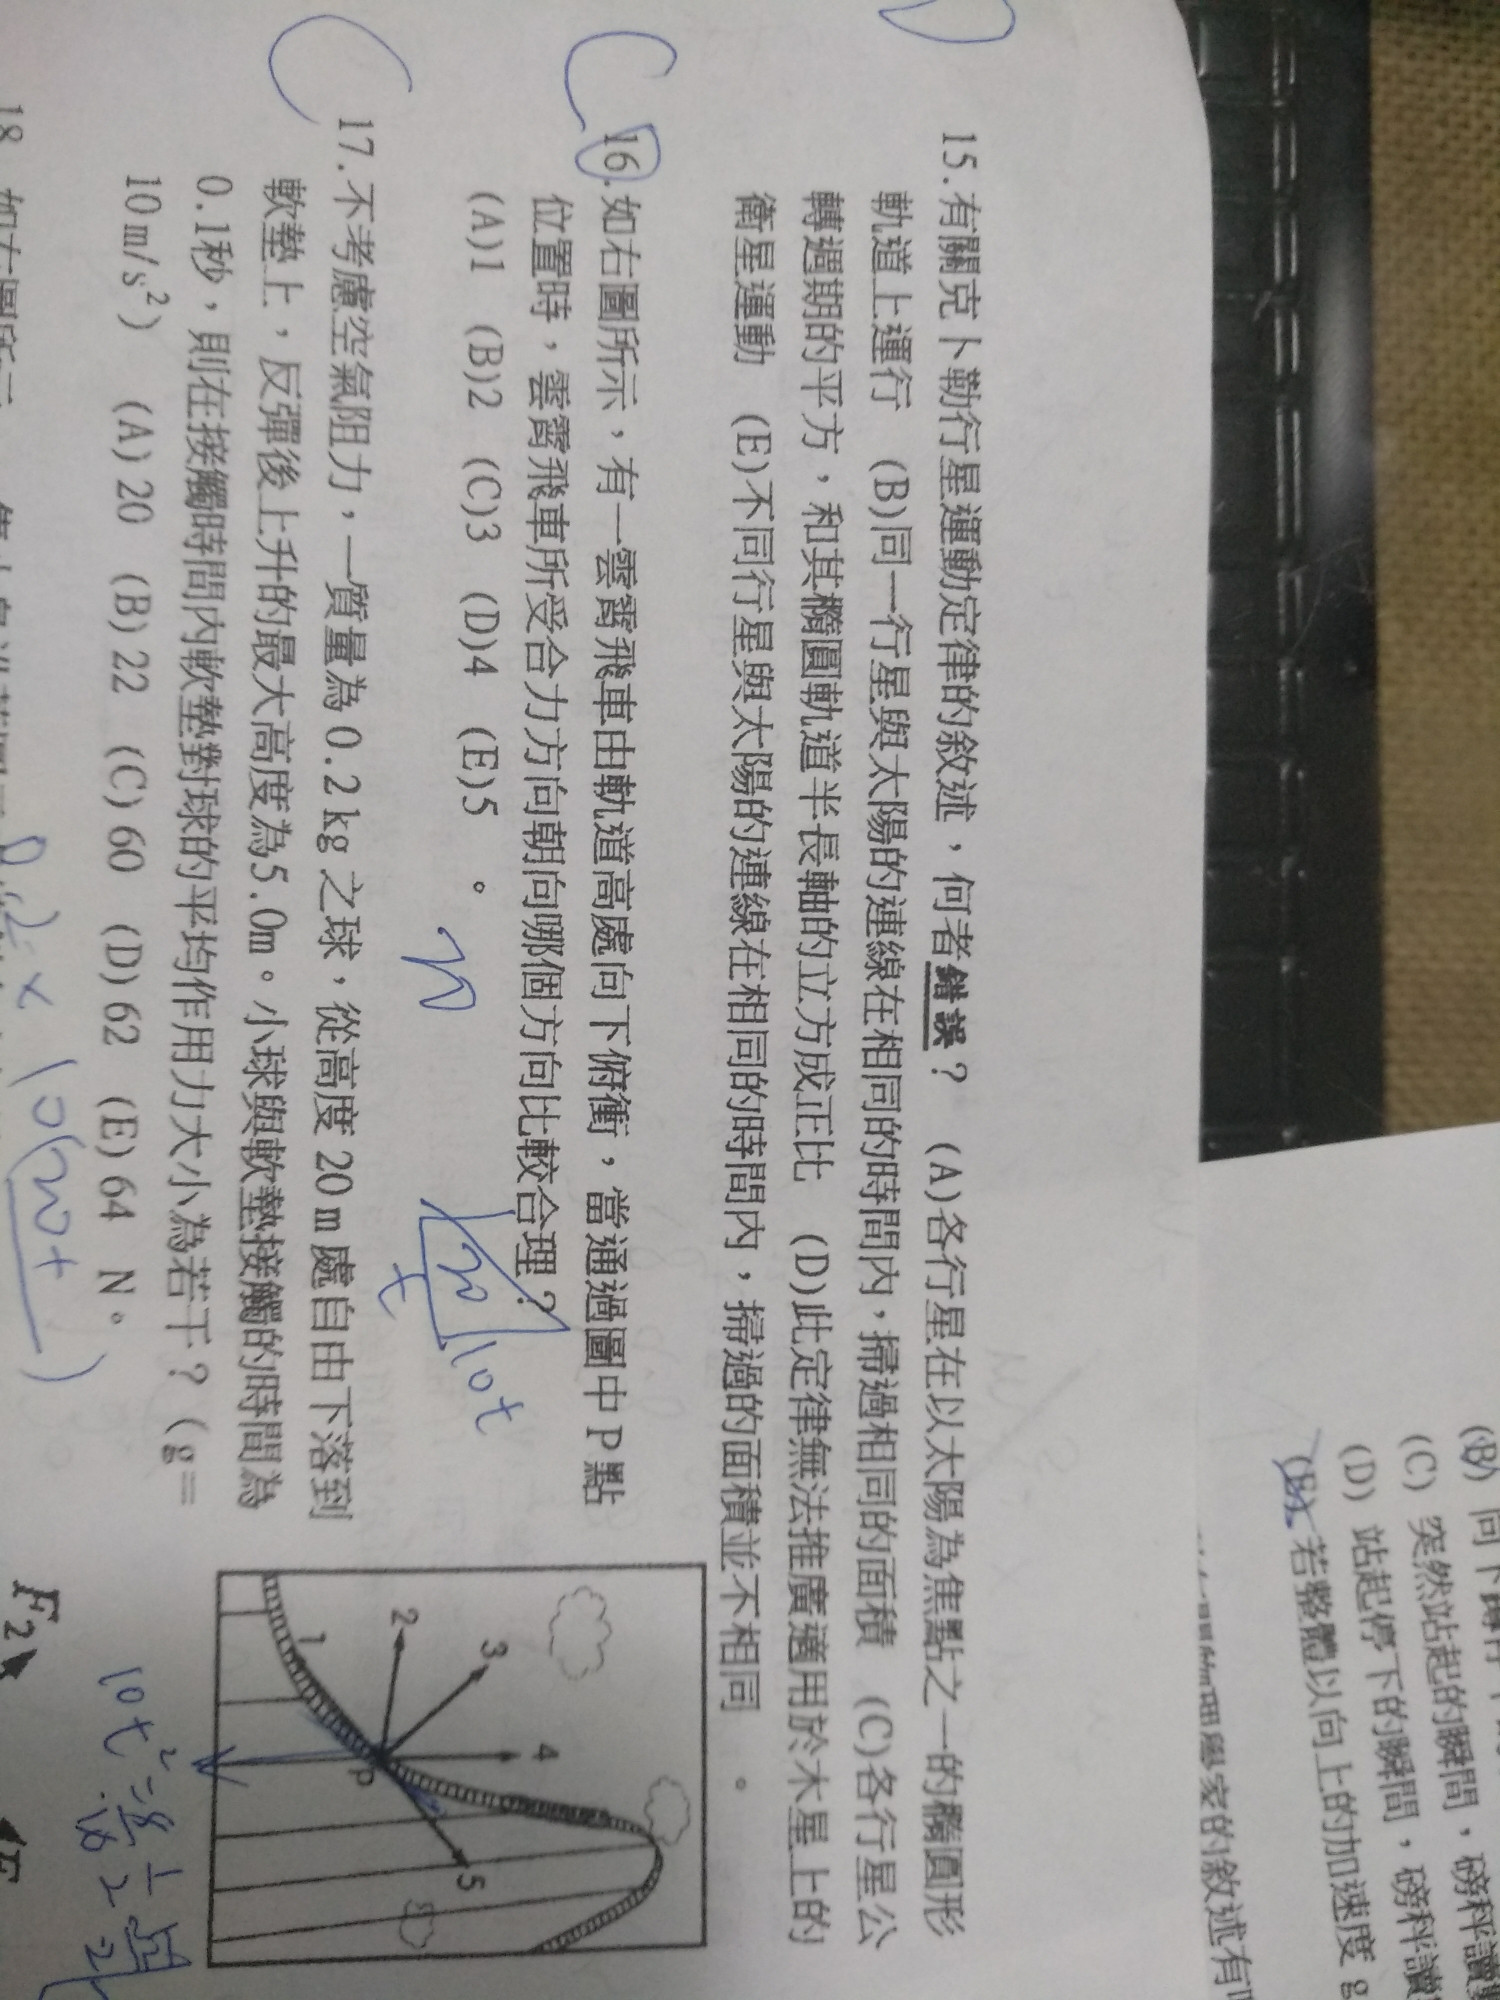 (B) 向下蹲
(C) 突然站起的瞬間，磅秤讀
(D) 站起停下的瞬間，磅秤讀
(E) 若整體以向上的加速度 g
學家的敘述有
D
15.有關克卜勒行星運動定律的敘述，何者錯誤？ (A)各行星在以太陽為焦點之一的橢圓形
軌道上運行 (B)同一行星與太陽的連線在相同的時間內，掃過相同的面積 (C)各行星公
轉週期的平方，和其橢圓軌道半長軸的立方成正比 (D)此定律無法推廣適用於木星上的
衛星運動 (E)不同行星與太陽的連線在相同的時間內，掃過的面積並不相同 。
C
16.如右圖所示，有一雲霄飛車由軌道高處向下俯衝，當通過圖中P點
位置時，雲霄飛車所受合力方向朝向哪個方向比較合理？
(A)1 (B)2 (C)3 (D)4 (E)5 。
20
10t
t
1
2
3
4
5
P
C
17.不考慮空氣阻力，一質量為0.2kg之球，從高度20m處自由下落到
軟墊上，反彈後上升的最大高度為5.0m。小球與軟墊接觸的時間為
0.1秒，則在接觸時間內軟墊對球的平均作用力大小為若干？(g=
10m/s²) (A)20 (B)22 (C)60 (D)62 (E)64 N。
F2
18.如右圖所示